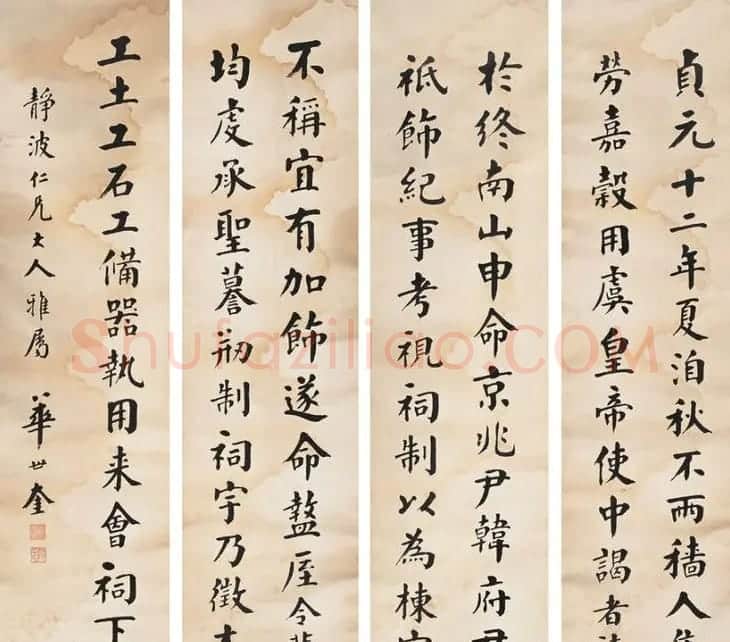 貞元十二年夏洎秋不雨穡人
勞嘉穀用虞皇帝使中謁者
於終南山申命京兆尹韓府
祗飾紀事考視祠制以為棟
不稱宜有加飾遂命盩厔令
均虔承聖謩剏制祠宇乃徵
工土工石工備器執用来會祠下
靜波仁兄大人雅屬
華世奎
Shufaziliao.COM